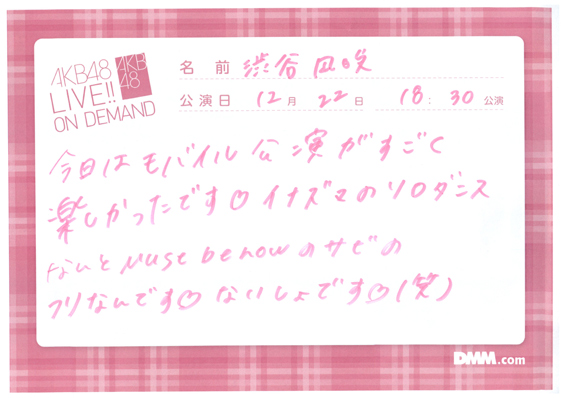 AKB48
LIVE!!
ON DEMAND
AKB
48
名 前 渋谷凪咲
公演日 12月 22日 18:30公演
今日はモバイル公演がすごく
楽しかったです♡イナズマのソロダンス
なんとMust be nowのサビの
フリなんです♡ないしょです♡(笑)
DMM.com